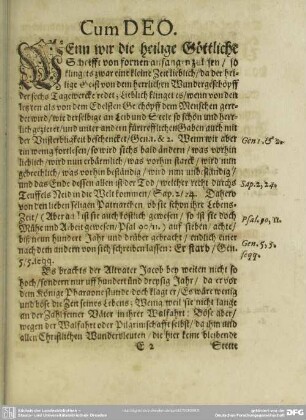 Cum DEO.
WEnn wir die heilige Göttliche
Schrifft von fornen anfangen zu lesen / so
klingts zwar eine kleine Zeit lieblich / da der hei-
lige Geist von dem herrlichen Wundergeschöpff
der sechs Tagewercke redet, Lieblich klinget es / wenn von den
letzten als von dem Edelsten Geschöpff dem Menschen gere-
det wird / wie derselbige an Leib und Seele so schön und herr-
lich gezieret / und unter andern fürtrefflichen Gaben auch mit
der Unsterbligkeit beschencket / Gen. 1. & 2. Wenn wir aber
ein wenig fortlesen / so wird sichs bald ändern / was vorhin
lieblich / wird nun erbärmlich / was vorhin starck / wird nun
gebrechlich / was vorhin beständig / wird nun unbeständig /
und das Ende dessen allen ist der Tod / welcher reicht durchs
Teuffels Neid in die Welt kommen / Sap. 2/24. Daher
von den lieben seligen Patriarchen ob sie schon ihre Lebens-
Zeit / ist sie auch köstlich gewesen / so ist sie doch
Mühe und Arbeit gewesen / Psal 90/ 11.) auf sieben / achte /
biß neun hundert Jahr und drüber gebracht / endlich einer
nach dem andern von sich schreiben lassen: Er starb / Gen.
5/5. seqq.
Es brachts der Altvater Jacob bey weiten nicht so
hoch / sondern nur auff hundert und dreyssig Jahr / da er
vor dem Könige Pharaone stunde doch klagt Er / Es wäre wenig
und böse die Zeit seines Lebens: Wenig weil sie nicht lange
an der Zahl seiner Väter in ihrer Walfahrt: Böse aber /
wegen der Walfahrt oder Pilgrimschafft selbst / da ihm und
allen Christlichen Wandersleuten / die hier keine bleibende
E 2 Stette
Gen: 1. & 2.
Sap. 2, 24.
Psal. 90, 11.
Gen. 5, 5.
seqq.